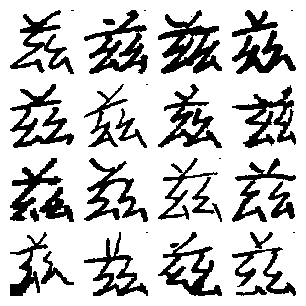 兹兹兹兹
兹兹兹兹
兹兹兹兹
兹兹兹兹